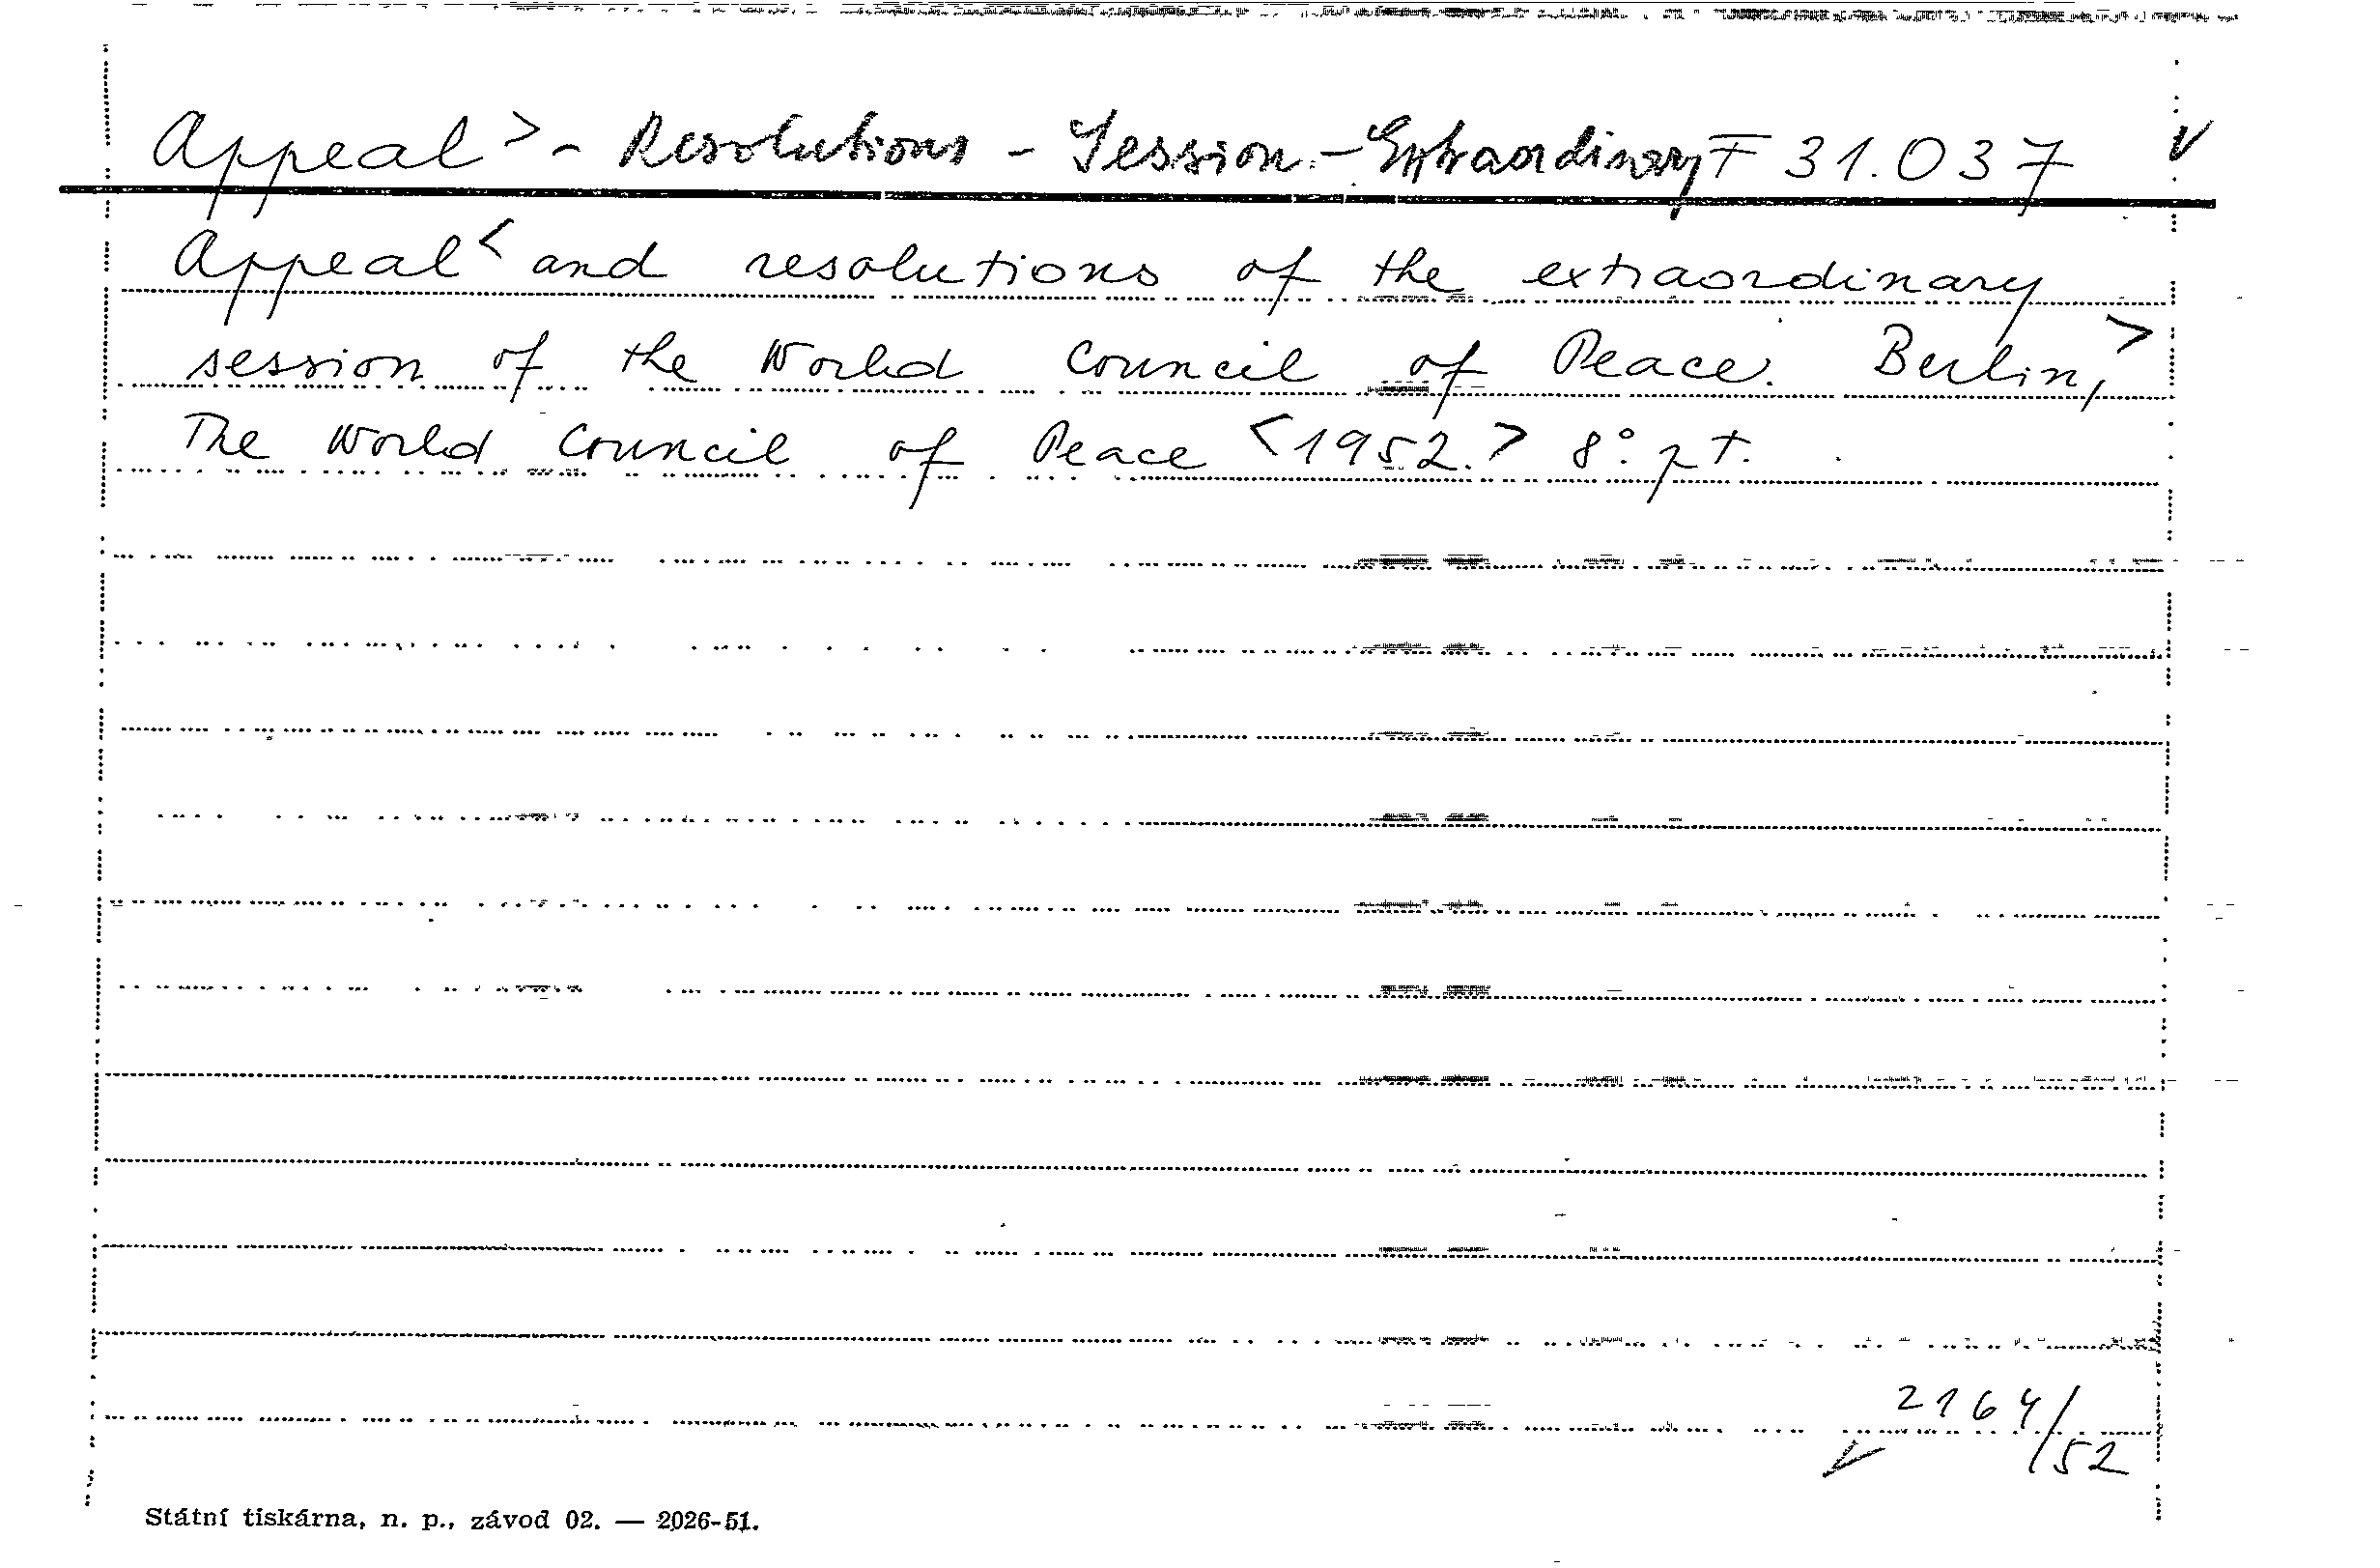 Appeal > - Resolutions - Session - Extraordinary F 31.037 V
Appeal < and resolutions of the extraordinary
session of the World Council of Peace. Berlin, >
The World Council of Peace < 1952. > 8°. pt.
2164/52
V
Státní tiskárna, n. p., závod 02. — 2026-51.